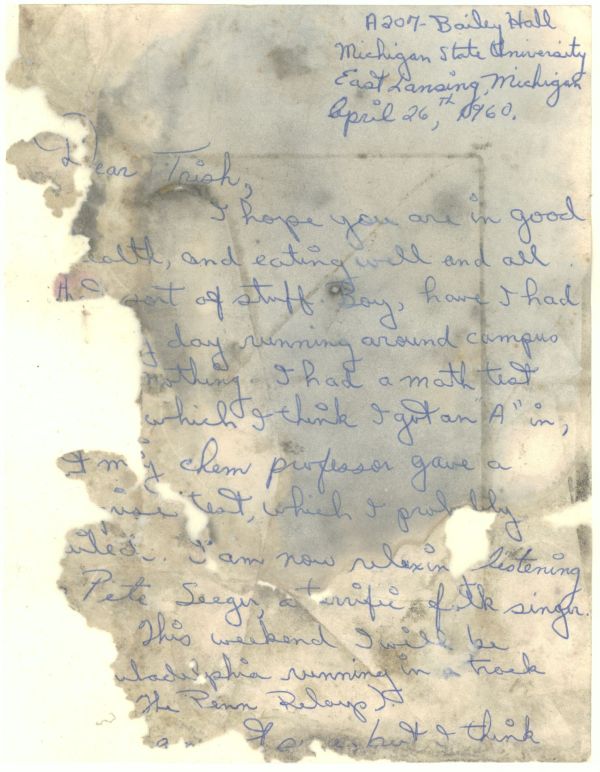 A207- Bailey Hall
Michigan State University
East Lansing, Michigan
April 26,TH 1960.
Dear Trish,
I hope you are in good
ealth, and eating well and all
sort of stuff. Boy, have I had
y day running around campus
nothing. I had a math test
which I think I got an "A" in,
my chem professor gave a
test, which I probably
I am now relaxin listening
Pete Seeger, a terrific folk singer.
This weekend I will be
iladelphia running in a track
The Penn Relays)
but I think